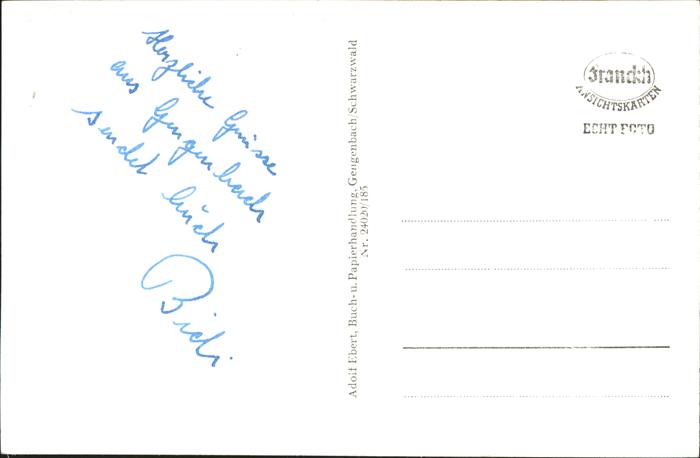 Herzliche Grüsse
aus Gengenbach
sendet Euch
Adolf Ebert, Buch- u. Papierhandlung, Gengenbach/Schwarzwald
Nr. 24020/185
Franckh
ANSICHTSKARTEN
ECHT FOTO